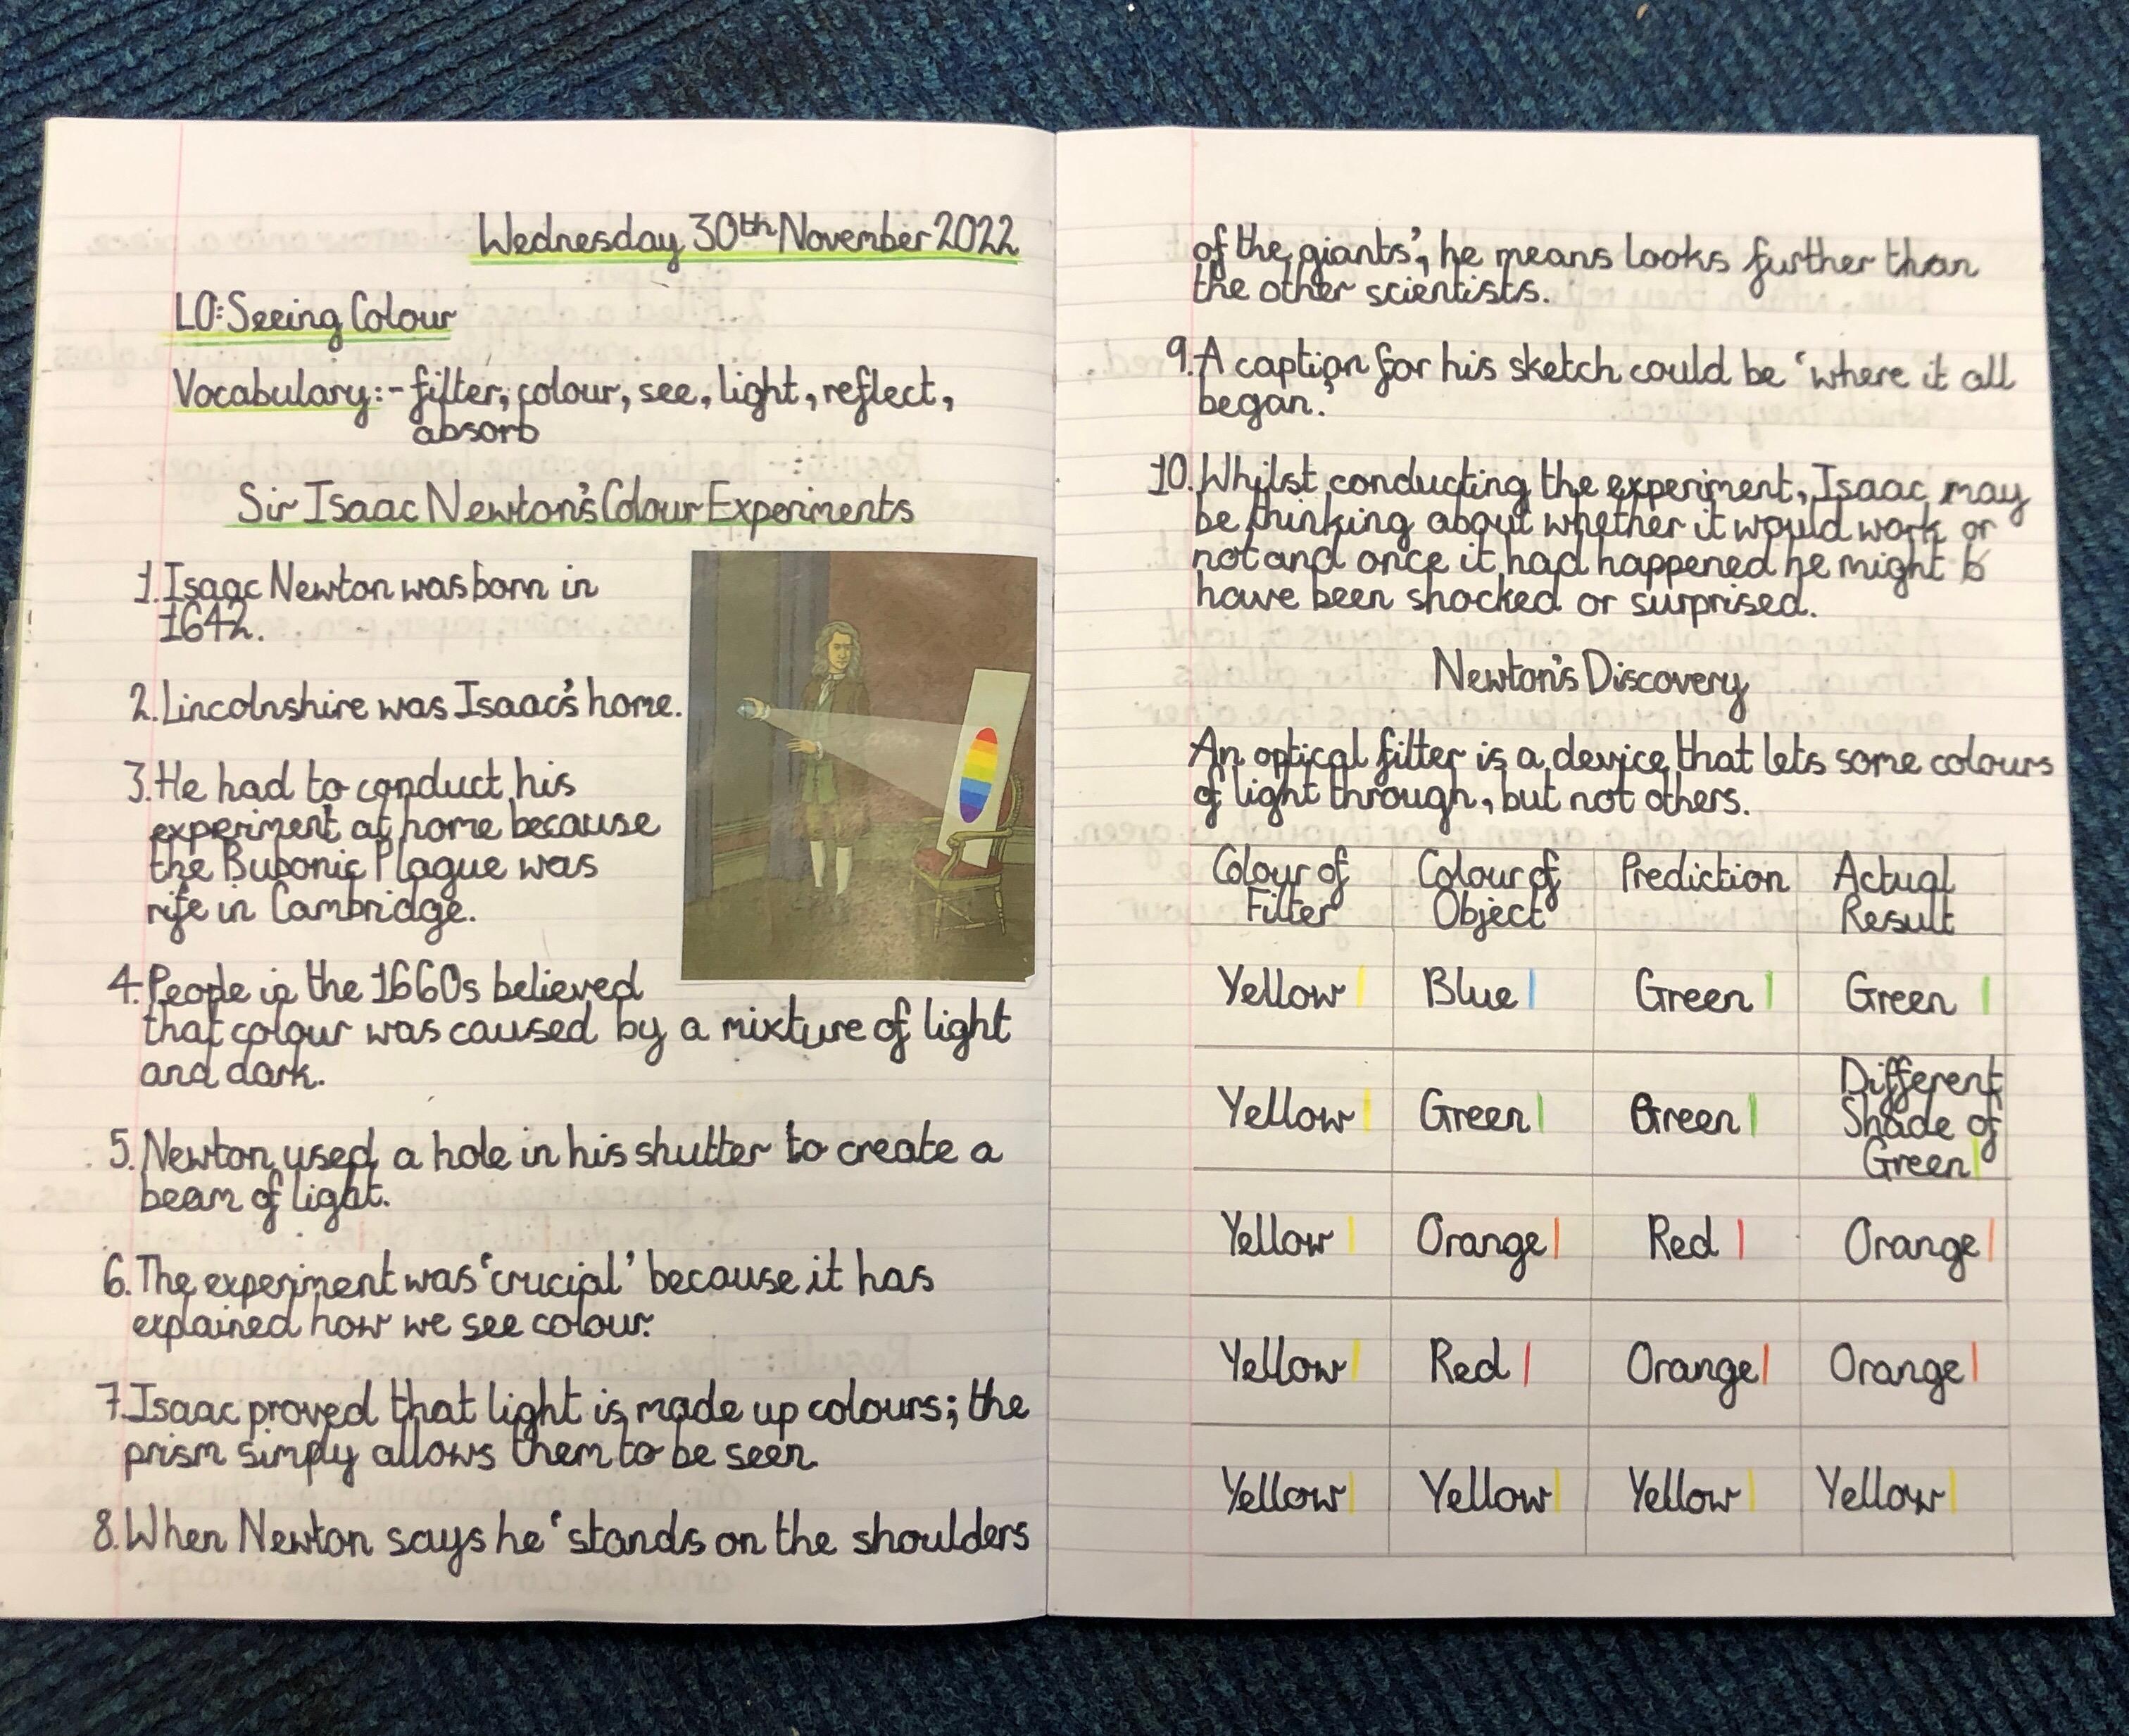 Wednesday 30th November 2022
LO: Seeing Colour
Vocabulary:- filter, colour, see, light, reflect,
absorb
Sir Isaac Newton's Colour Experiments
1. Isaac Newton was born in
1642.
2. Lincolnshire was Isaac's home.
3. He had to conduct his
experiment at home because
the Bubonic Plague was
rife in Cambridge.
4. People in the 1660s believed
that colour was caused by a mixture of light
and dark.
5. Newton used a hole in his shutter to create a
beam of light.
6. The experiment was 'crucial' because it has
explained how we see colour.
7. Isaac proved that light is made up colours; the
prism simply allows them to be seen.
8. When Newton says he 'stands on the shoulders
of the giants', he means looks further than
the other scientists.
9. A caption for his sketch could be 'where it all
began.'
10. Whilst conducting the experiment, Isaac may
be thinking about whether it would work or
not and once it had happened he might b
have been shocked or surprised.
Newton's Discovery
An optical filter is a device that lets some colours
of light through, but not others.
Colour of Filter Colour of Object Prediction Actual Result
Yellow Blue Green Green
Yellow Green Green Different Shade of Green
Yellow Orange Red Orange
Yellow Red Orange Orange
Yellow Yellow Yellow Yellow